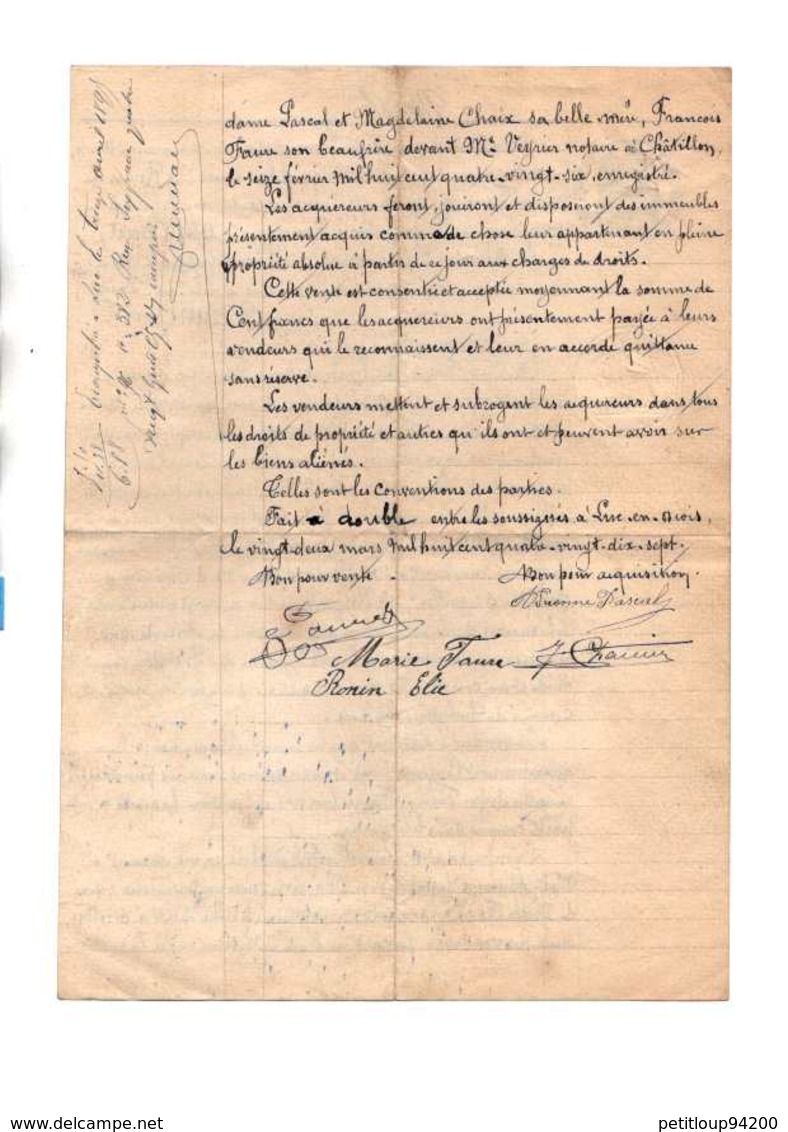 dame Pascal et Magdelaine Chaix sa belle-mère, Francois
Faure son beaufrère devant Me Veyrier notaire à Châtillon,
le seize février mil huit cent quatre-vingt-six, enregistré.
Les acquiereurs feront, jouiront et disposeront des immeubles
présentement acquis comme de chose leur appartenant en pleine
propriété absolue à partir de ce jour aux charges de droits.
Cette vente est consentie et acceptée moyennant la somme de
Cent francs que les acquereurs ont présentement payée à leurs
vendeurs qui le reconnaissent et leur en accorde quittance
sans réserve.
Les vendeurs mettent et subrogent les acquereurs dans tous
les droits de propriété et autres qu'ils ont et peuvent avoir sur
les biens aliénés.
Telles sont les conventions des parties.
Fait à double entre les soussignés à Luc-en-Diois,
le vingt-deux mars mil huit cent quatre-vingt-dix-sept.
Bon pour vente - Bon pour acquisition.
Pascal
Marie Faure
Ronin Elie
Enregistré à Luc le treize avril 189
vingt cinq
petitloup94200
www.delcampe.net